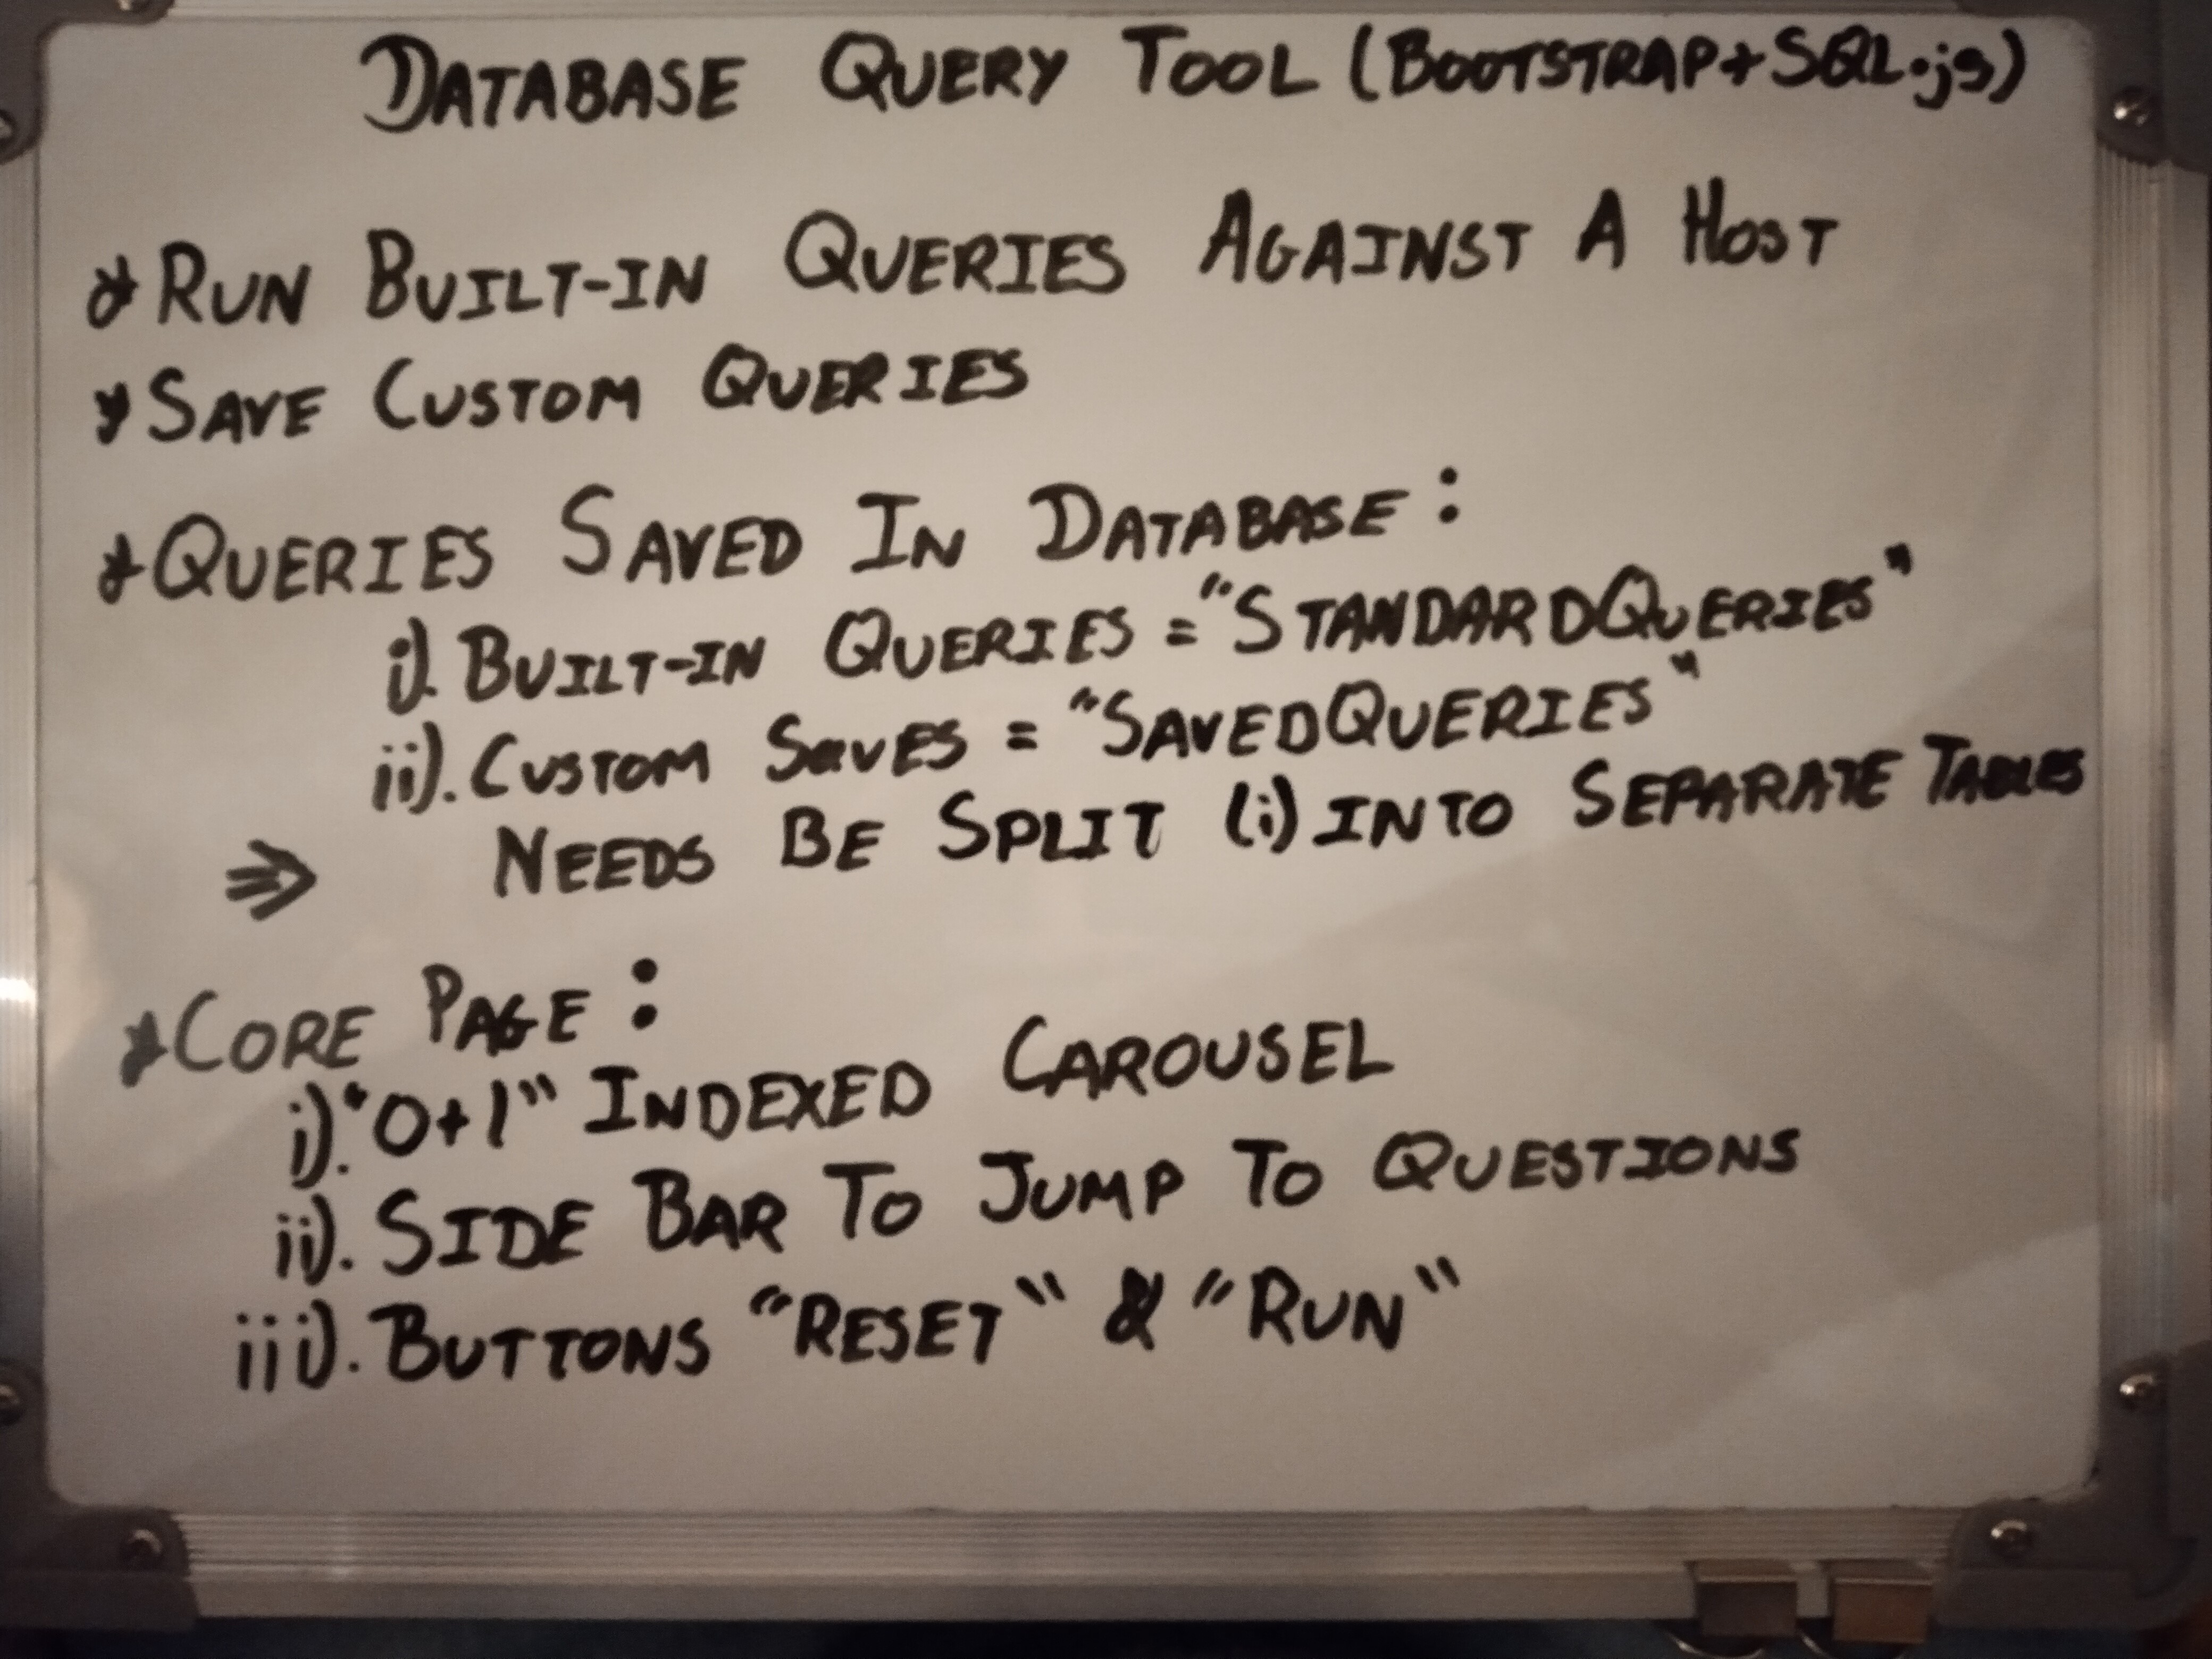 DATABASE QUERY TOOL (BOOTSTRAP+SQL.js)
* RUN BUILT-IN QUERIES AGAINST A HOST
* SAVE CUSTOM QUERIES
* QUERIES SAVED IN DATABASE:
i). BUILT-IN QUERIES = "STANDARDQUERIES"
ii). CUSTOM SAVES = "SAVEDQUERIES"
⇒ NEEDS BE SPLIT (i) INTO SEPARATE TABLES
* CORE PAGE:
i). "0+1" INDEXED CAROUSEL
ii). SIDE BAR TO JUMP TO QUESTIONS
iii). BUTTONS "RESET" & "RUN"